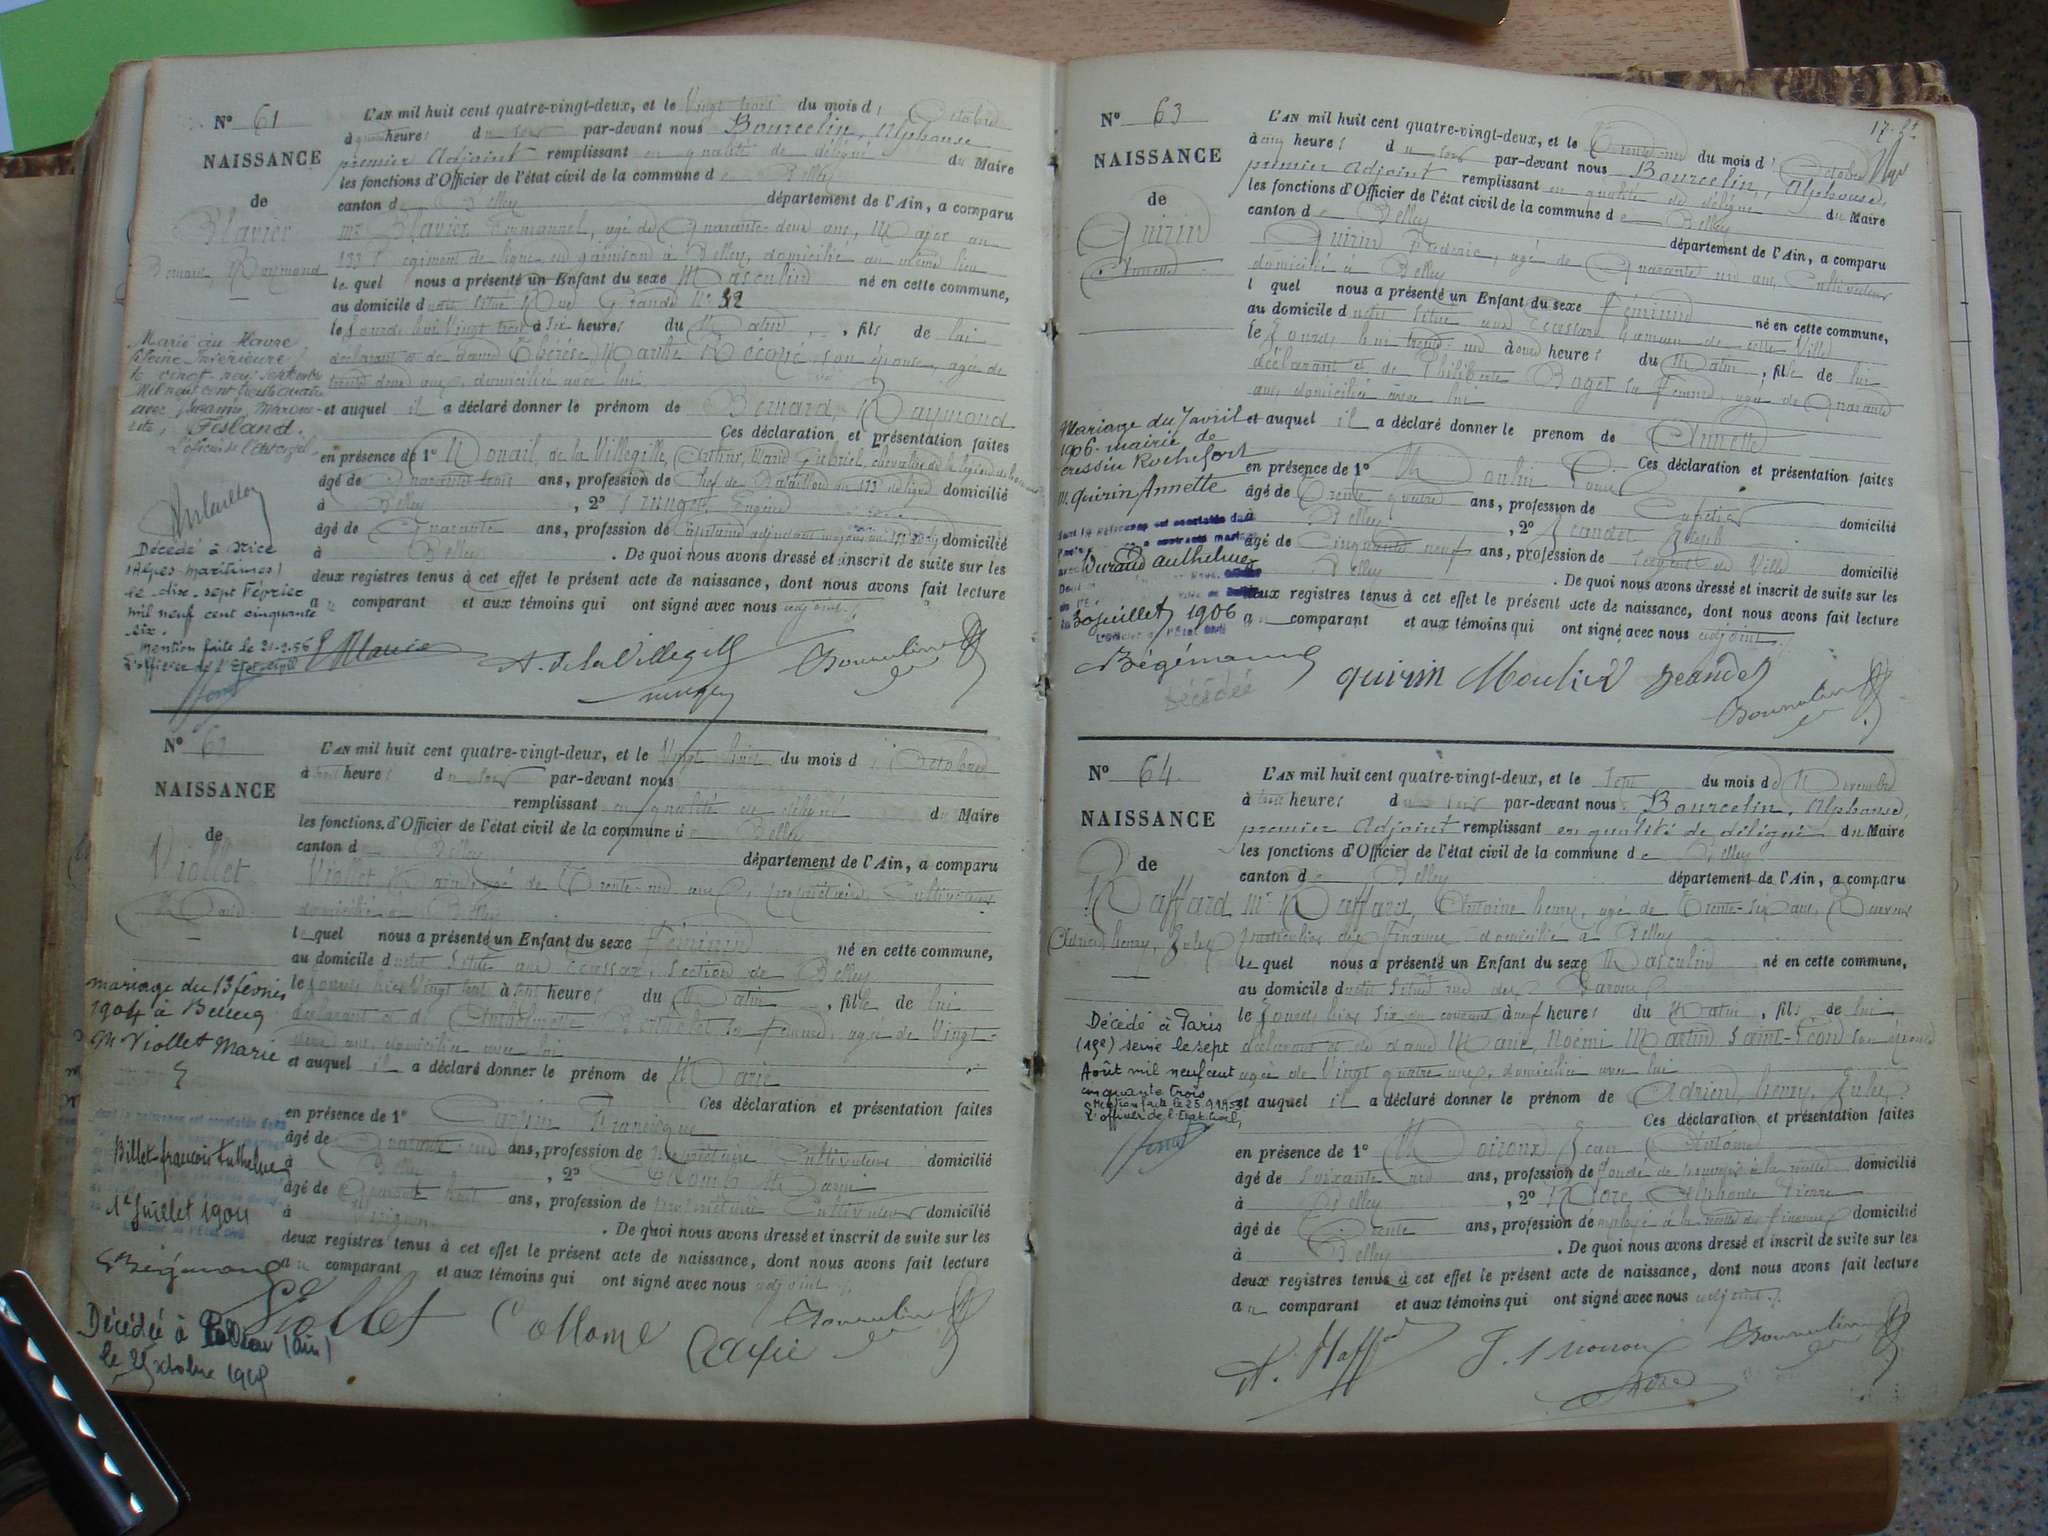 N° 61
NAISSANCE
de
Blavier
Bernard, Raymond
L'AN mil huit cent quatre-vingt-deux, et le Vingt trois du mois d' Octobre
à heures du soir par-devant nous Bourcelin, Alphonse
premier Adjoint remplissant en qualité de délégué du Maire
les fonctions d'Officier de l'état civil de la commune de Belley
canton de Belley département de l'Ain, a comparu
Mr Blavier Emmanuel, âgé de Quarante-deux ans, Major au
133e Régiment de ligne en garnison à Belley, domicilié au même lieu
lequel nous a présenté un Enfant du sexe Masculin né en cette commune,
au domicile situé Rue Grande N° 32
le Jourd'hui Vingt trois à Six heures du Matin, fils de lui
déclarant et de dame Thérèse Marthe son épouse, âgée de
trente deux ans, domiciliée avec lui
et auquel il a déclaré donner le prénom de Bernard, Raymond
Ces déclaration et présentation faites
en présence de 1° de la Villegille, Arthur, Marie Gabriel, chevalier de la légion
âgé de Quarante trois ans, profession de Chef de Bataillon au 133e de ligne domicilié
à Belley, 2° Eugène
âgé de Quarante ans, profession de Capitaine adjudant major au 133e domicilié
à Belley. De quoi nous avons dressé et inscrit de suite sur les
deux registres tenus à cet effet le présent acte de naissance, dont nous avons fait lecture
au comparant et aux témoins qui ont signé avec nous adjoint.
Marié au Havre
(Seine Inférieure)
le vingt-neuf septembre
mil neuf cent trente quatre
avec Jeanne, Margue-
rite, Fesland.
L'officier de l'Etat civil
Décédé à Nice
(Alpes-maritimes)
le dix-sept Février
mil neuf cent cinquante
six.
Mention faite le 21-2-56
L'officier de l'Etat civil
A. de la Villegille
N° 62
NAISSANCE
de
Viollet
Marie
L'AN mil huit cent quatre-vingt-deux, et le Vingt huit du mois d' Octobre
à heures du soir par-devant nous
remplissant en qualité de délégué du Maire
les fonctions d'Officier de l'état civil de la commune de Belley
canton de Belley département de l'Ain, a comparu
Viollet âgé de Trente-un ans, propriétaire Cultivateur
domicilié à Belley
lequel nous a présenté un Enfant du sexe Féminin né en cette commune,
au domicile situé aux Ecassaz, Section de Belley
le à heures du Matin, fille de lui
déclarant et de sa femme, âgée de Vingt-
ans, domiciliée avec lui
et auquel il a déclaré donner le prénom de Marie
Ces déclaration et présentation faites
en présence de 1° Francisque
âgé de Quarante-un ans, profession de propriétaire Cultivateur domicilié
à Belley, 2°
âgé de ans, profession de propriétaire Cultivateur domicilié
à . De quoi nous avons dressé et inscrit de suite sur les
deux registres tenus à cet effet le présent acte de naissance, dont nous avons fait lecture
au comparant et aux témoins qui ont signé avec nous adjoint.
mariage du 13 février
1904 à
M Viollet Marie
Billet francois Anthelme
1er Juillet 1904
Bégémann
Décédée à (Ain)
le octobre
Viollet
N° 63
17
NAISSANCE
de
Quirin
Annette
L'AN mil huit cent quatre-vingt-deux, et le Trente-un du mois d' Octobre
à cinq heures du soir par-devant nous Bourcelin, Alphonse,
premier Adjoint remplissant en qualité de délégué du Maire
les fonctions d'Officier de l'état civil de la commune de Belley
canton de Belley département de l'Ain, a comparu
Quirin Frédéric, âgé de Quarante un ans, Cultivateur
domicilié à Belley
lequel nous a présenté un Enfant du sexe Féminin né en cette commune,
au domicile situé aux Ecassaz hameau de cette Ville
le Jourd'hui trente-un à onze heures du Matin, fille de lui
déclarant et de Philiberte Boget sa femme, âgée de Quarante
ans, domiciliée avec lui
et auquel il a déclaré donner le prénom de Annette
Ces déclaration et présentation faites
en présence de 1° Moulin
âgé de Trente quatre ans, profession de Cafetier domicilié
à Belley, 2° Jeandet Joseph
âgé de Cinquante neuf ans, profession de Sergent de Ville domicilié
à Belley. De quoi nous avons dressé et inscrit de suite sur les
deux registres tenus à cet effet le présent acte de naissance, dont nous avons fait lecture
au comparant et aux témoins qui ont signé avec nous adjoint.
Mariage du 7 avril
1906. mairie de
cressin Rochefort
M. Quirin Annette
dont la naissance est constatée
Durand anthelme
30 juillet 1906
L'Officier de l'Etat Civil
Bégémann
Décédée
quirin Moulin Jeandet
N° 64
NAISSANCE
de
Raffard
Adrien, henry, Jules
L'AN mil huit cent quatre-vingt-deux, et le Sept du mois de Novembre
à trois heures du soir par-devant nous Bourcelin, Alphonse,
premier Adjoint remplissant en qualité de délégué du Maire
les fonctions d'Officier de l'état civil de la commune de Belley
canton de Belley département de l'Ain, a comparu
Mr Raffard, Antoine henry, âgé de Trente-six ans, Receveur
particulier des Finances domicilié à Belley
lequel nous a présenté un Enfant du sexe Masculin né en cette commune,
au domicile situé rue des Barons
le Jour d'hier Six du courant à neuf heures du Matin, fils de lui
déclarant et de dame Marie, Noémi Martin Saint-Léon son épouse
âgée de Vingt quatre ans, domiciliée avec lui
et auquel il a déclaré donner le prénom de Adrien, henry, Jules,
Ces déclaration et présentation faites
en présence de 1° Moiroux Jean Antoine
âgé de Soixante un ans, profession de Fondé de pouvoirs à la recette domicilié
à Belley, 2° Alphonse Pierre
âgé de Trente ans, profession de employé à la recette des finances domicilié
à Belley. De quoi nous avons dressé et inscrit de suite sur les
deux registres tenus à cet effet le présent acte de naissance, dont nous avons fait lecture
au comparant et aux témoins qui ont signé avec nous adjoint.
Décédé à Paris
(15e) seine le sept
Août mil neuf cent
cinquante trois
Mention faite le 25.9.1953
L'officier de l'Etat Civil,